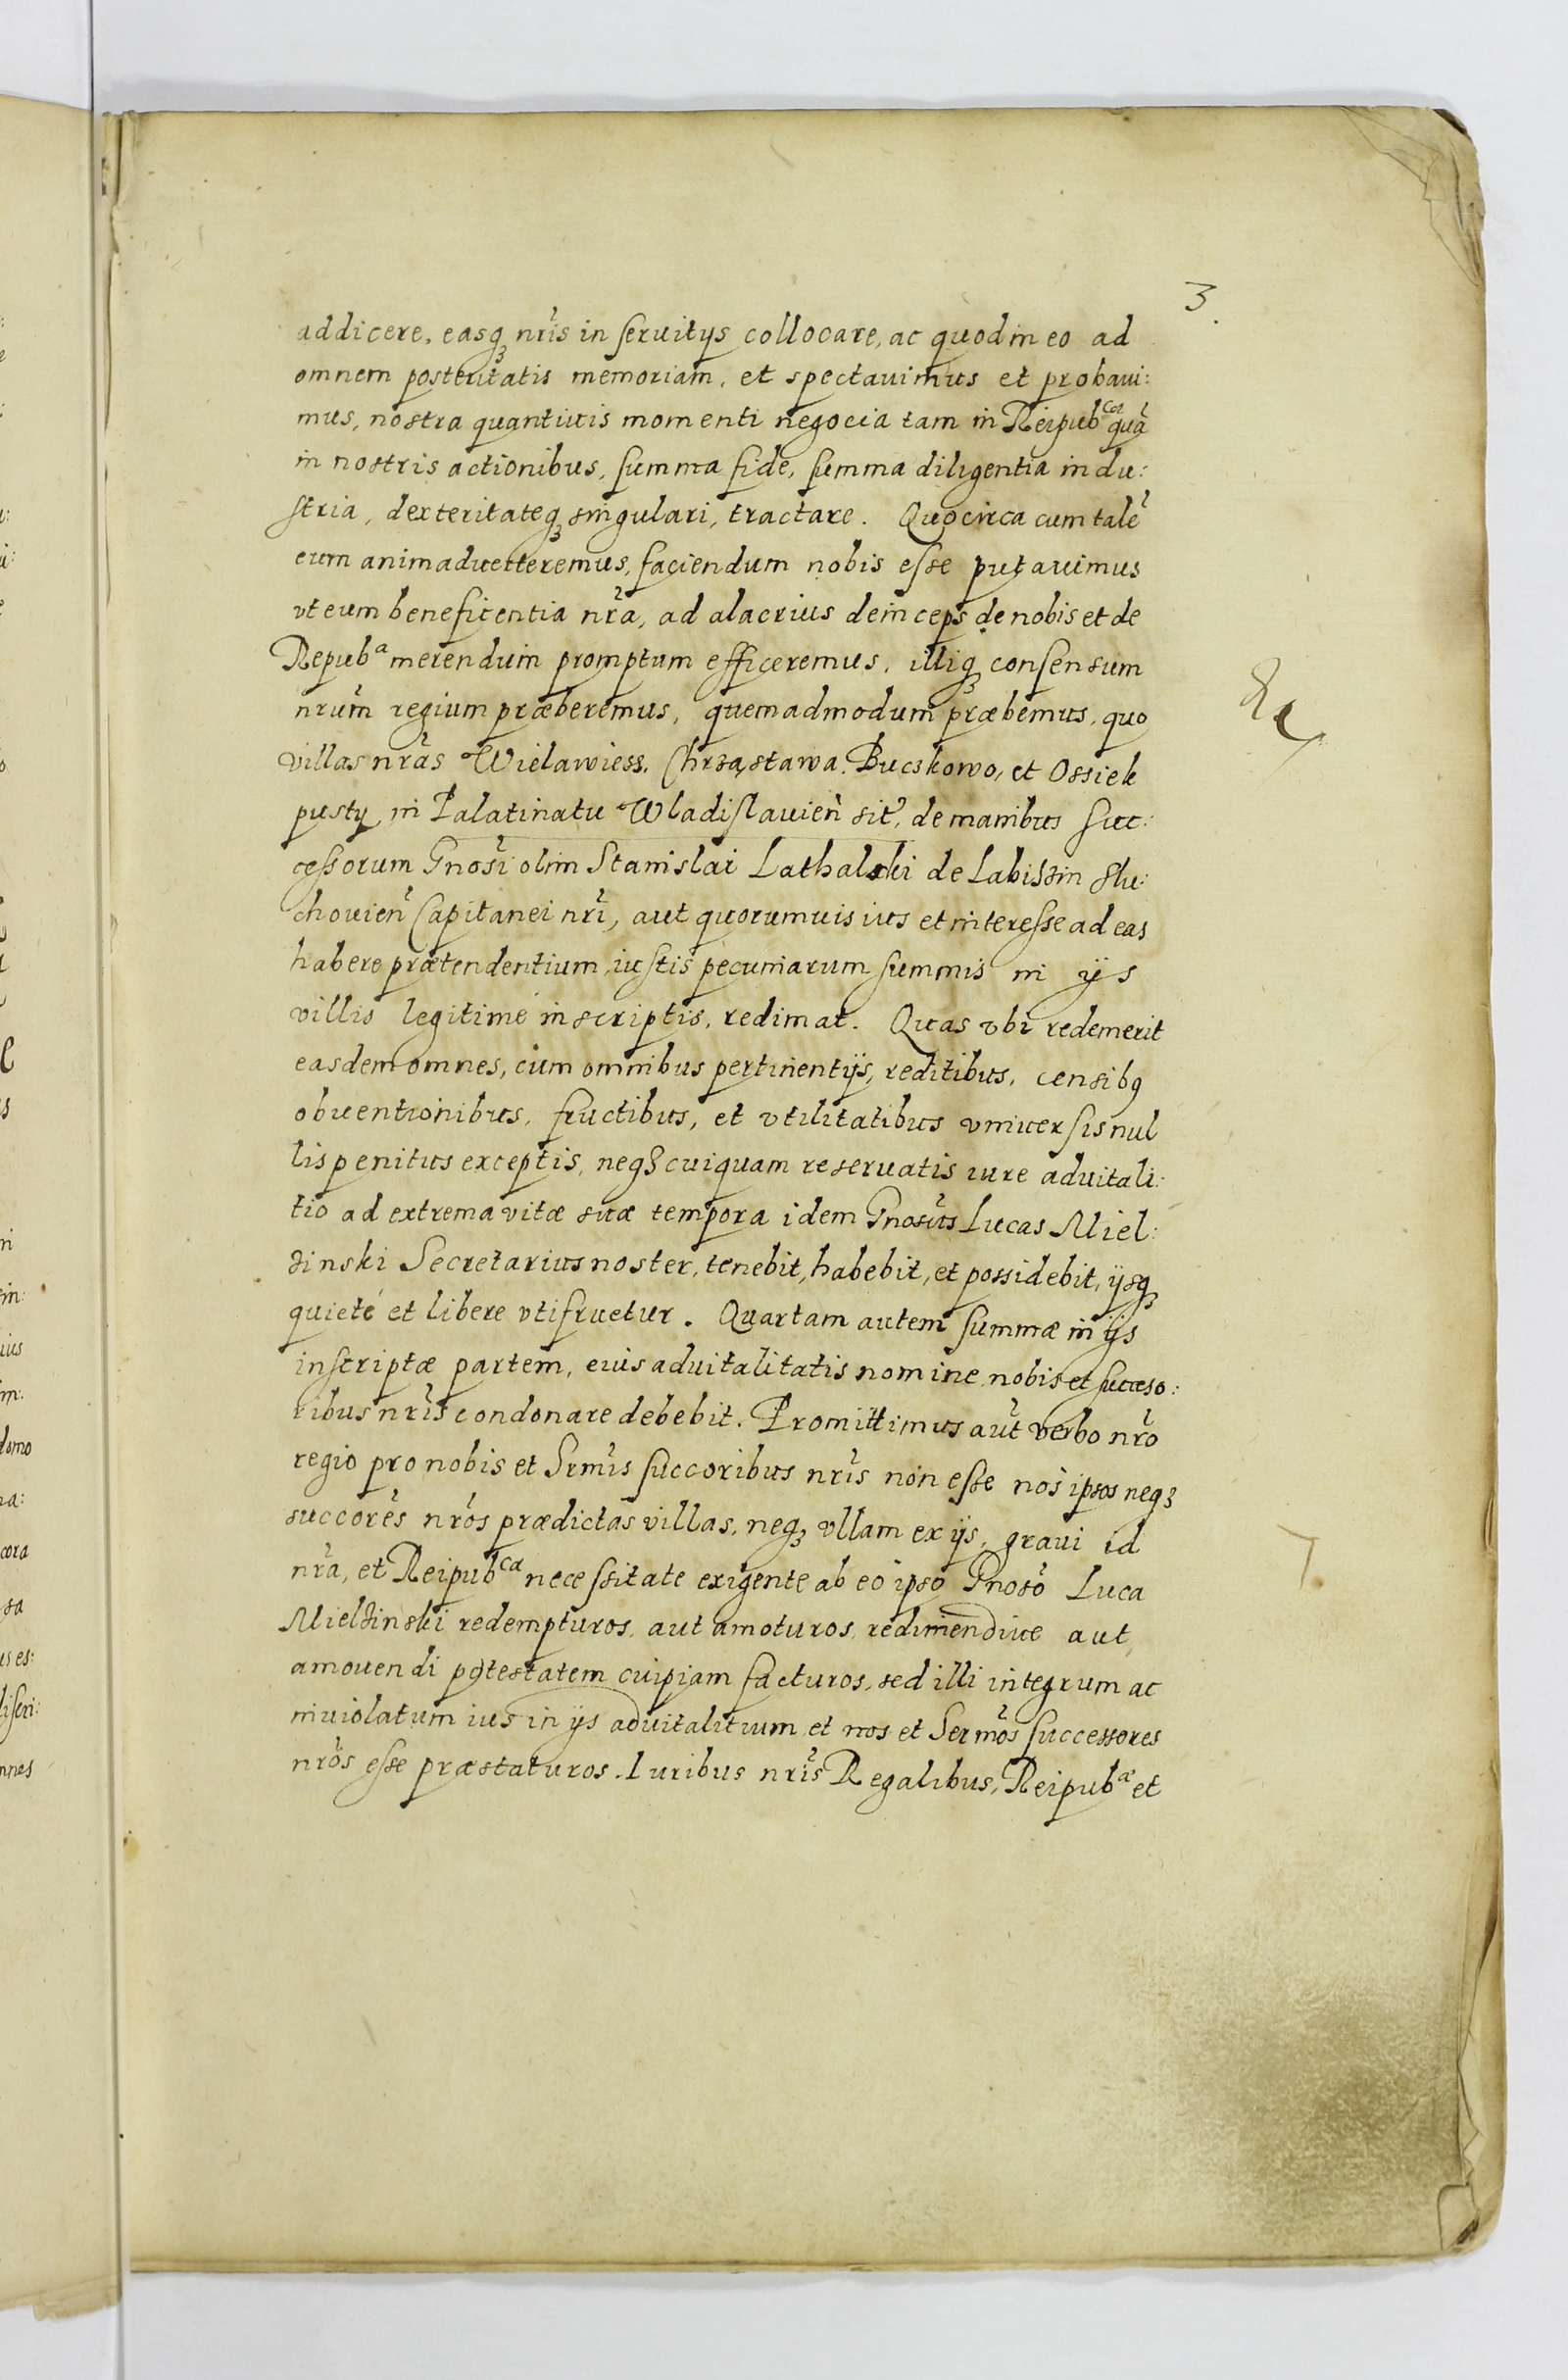 3.
addicere, easq₃ nr̃is in seruitys collocare, ac quod in eo ad
omnem posteritatis memoriam, et spectauimus et probaui:
mus, nostra quantiuis momenti negocia tam in Reipubᶜᵃᵉ quã
in nostris actionibus, summa fide, summa diligentia indu:
stria, dexteritateq₃ singulari, tractare. Quocirca cum talẽ
eum animaduerteremus, faciendum nobis esse putauimus
vt eum beneficentia nr̃a, ad alacrius deinceps de nobis et de
Repubᵃ merendum promptum efficeremus, illiq₃ consensum
nrũm regium præberemus, quemadmodum præbemus, quo
villas nrãs Wielawiess, Chrząstawa, Bucskowo, et Ossiek
pusty in Palatinatu Wladislauień sit̃, de manibus suc:
cessorum Gnosĩ olim Stanislai Lathalski de Labissin Slu:
chouień Capitanei nrĩ, aut quorumuis ius et interesse ad eas
habere prætendentium, iustis pecuniarum summis in ys
villis legitimé inscriptis, redimat. Quas vbi redemerit
easdem omnes, cum omnibus pertinentÿs, reditibus, censibq
obuentionibus, fructibus, et vtilitatibus vniuersis nul
lis penitus exceptis, neq₃ cuiquam reseruatis iure aduitali:
tio ad extrema vitæ suæ tempora idem Gnosũs Lucas Miel:
zinski Secretarius noster, tenebit, habebit, et possidebit, ÿsq₃
quieté et libere vtifruetur. Quartam autem summæ in ÿs
inscriptæ partem, eius aduitalitatis nomine nobis et succeso:
ribus nrĩs condonare debebit. Promittimus aũt verbo nrõ
regio pro nobis et Srmĩs succoribus nrĩs non esse nos ipsos neq₃
succorẽs nrõs prædictas villas, neq₃ vllam ex ÿs, graui id
nr̃a, et Reipubᶜᵃ necessitate exigente ab eo ipso Gnosõ Luca
Mielzinski redempturos, aut amoturos, redimendiue aut
amouendi potestatem cuipiam facturos, sed illi integrum ac
inuiolatum ius in ÿs aduitalitium et nos et Sermõs successores
nrõs esse præstaturos. Iuribus nrĩs Regalibus, Reipubᵃᵉ et